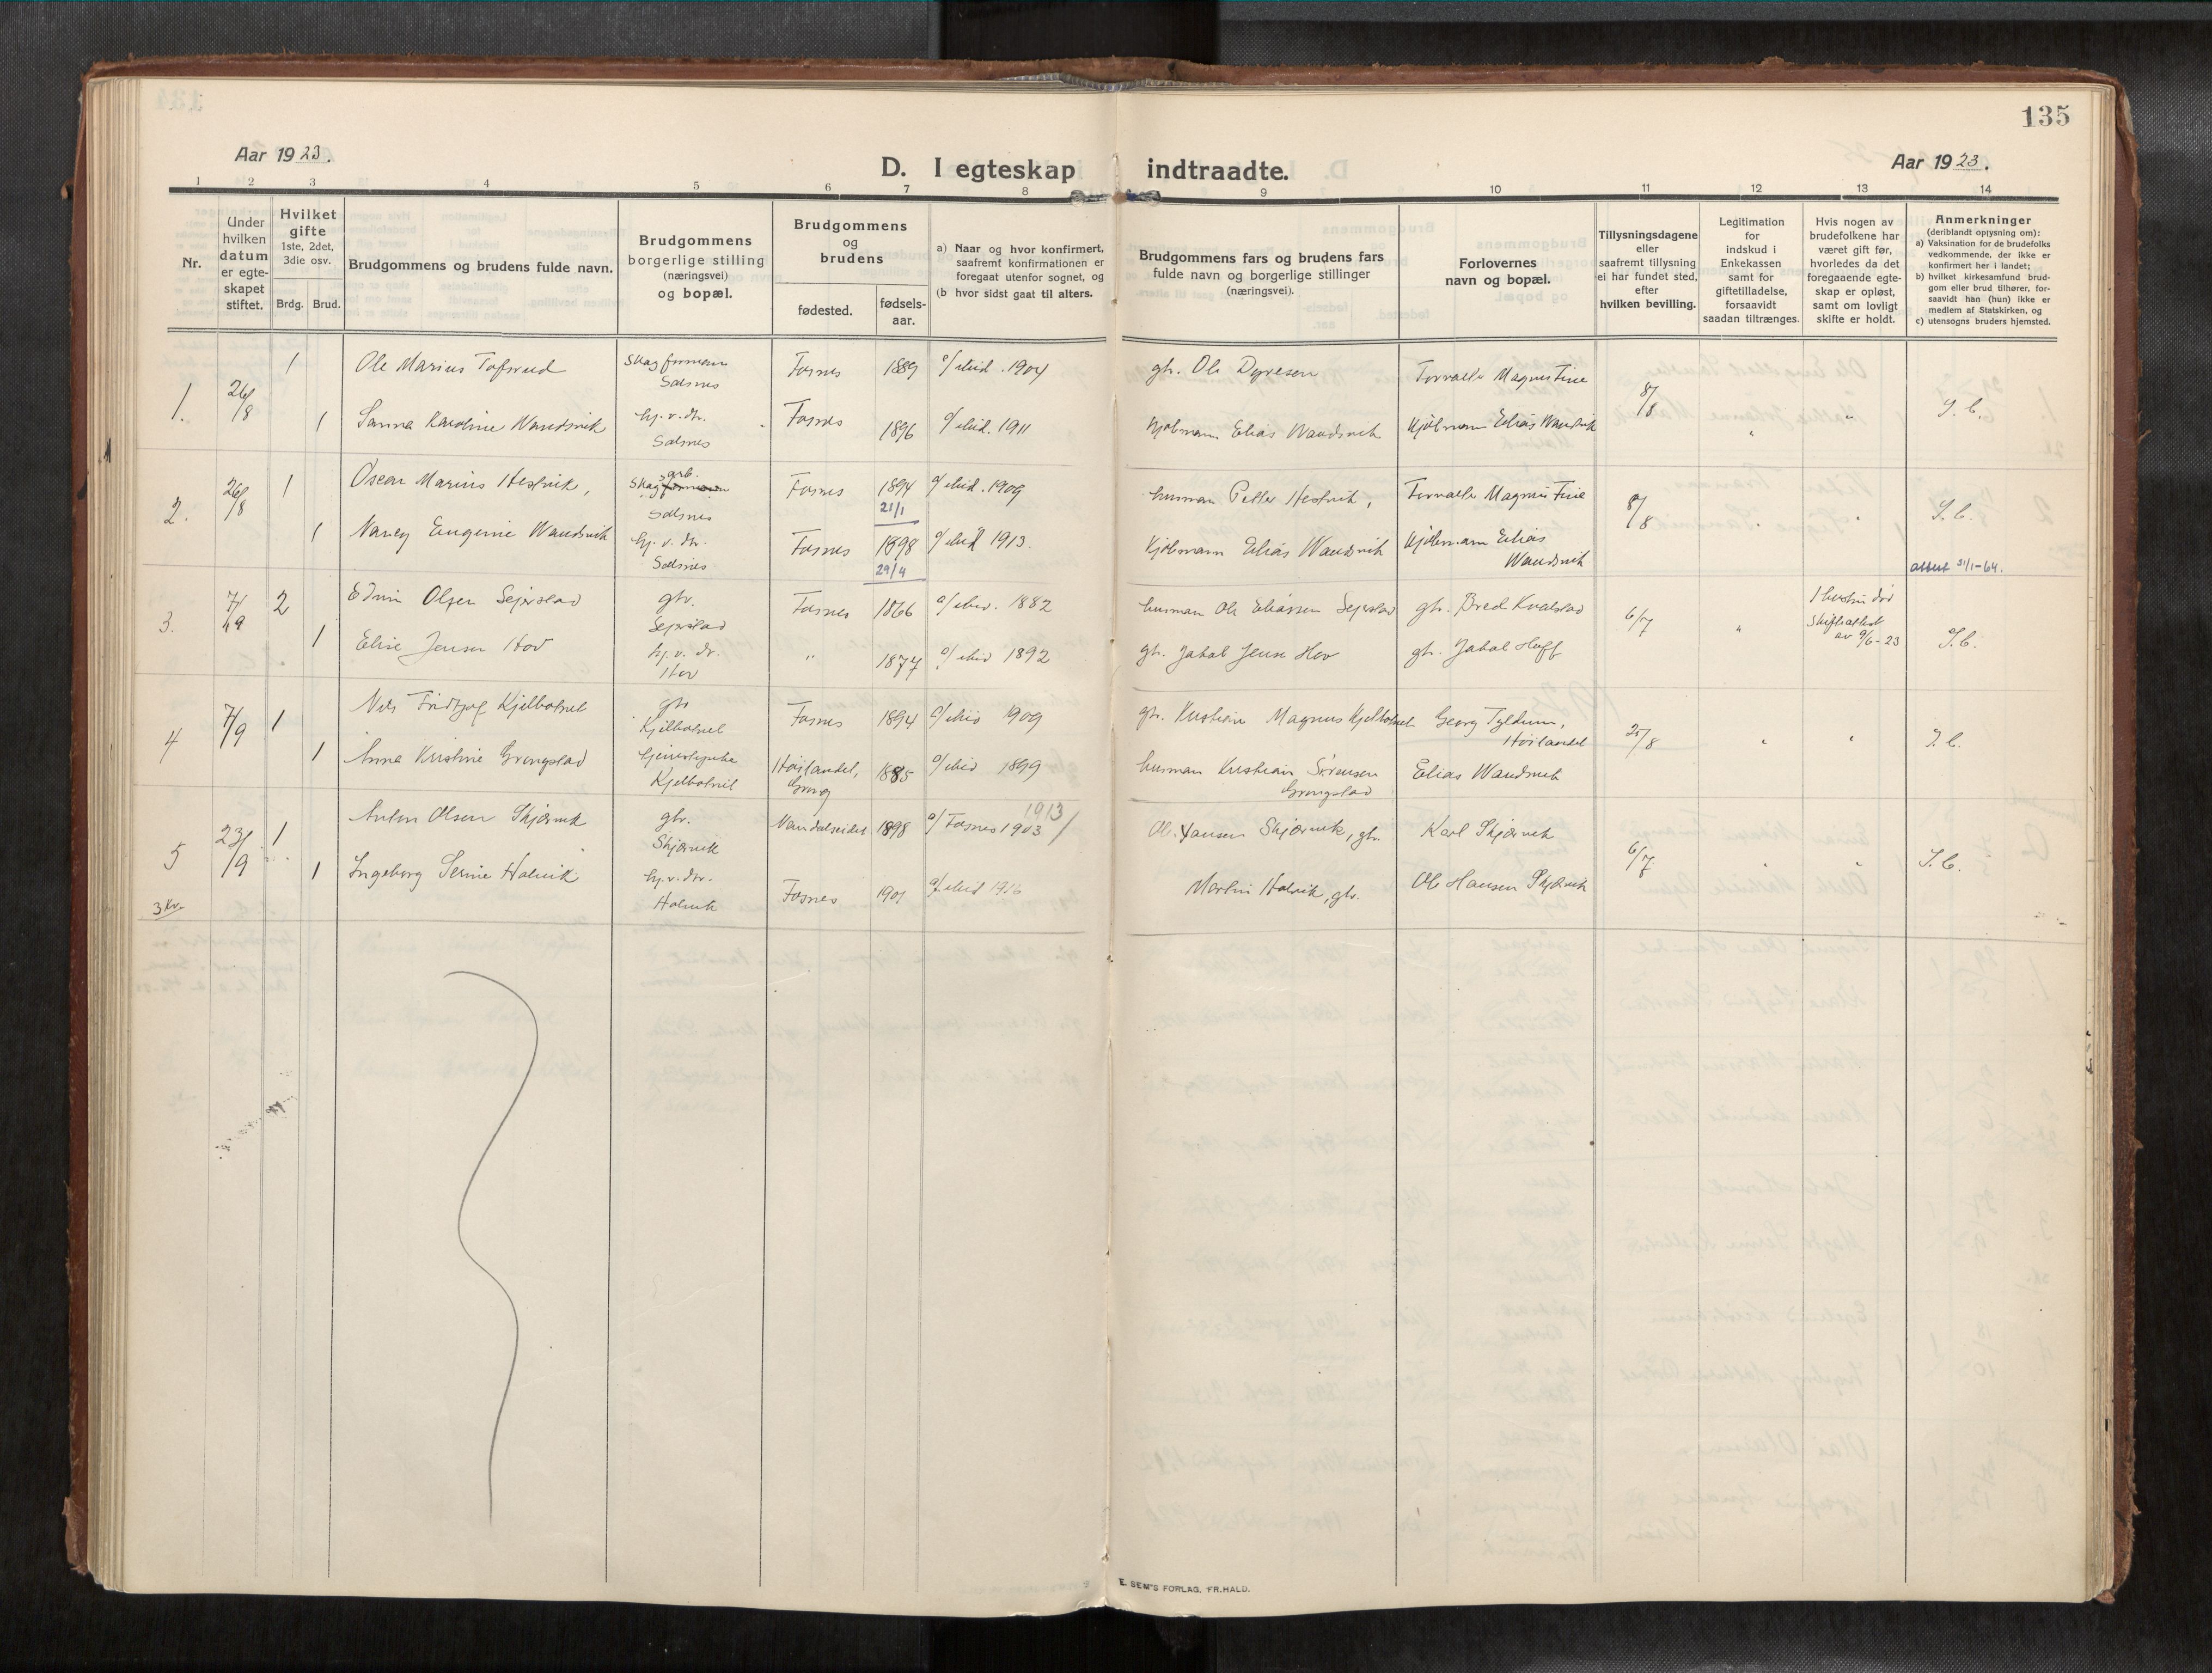 135
Aar 1923.
D. I egteskap indtraadte.
Aar 1923.
1 2 3 4 5 6 7 8 9 10 11 12 13 14
Nr.
Under hvilken datum er egteskapet stiftet.
Hvilket gifte 1ste, 2det, 3die osv.
Brdg. Brud.
Brudgommens og brudens fulde navn.
Brudgommens borgerlige stilling (næringsvei) og bopæl.
Brudgommens og brudens
fødested.
fødselsaar.
a) Naar og hvor konfirmert, saafremt konfirmationen er foregaat utenfor sognet, og
(b hvor sidst gaat til alters.
Brudgommens fars og brudens fars fulde navn og borgerlige stillinger (næringsvei).
Forlovernes navn og bopæl.
Tillysningsdagene eller saafremt tillysning ei har fundet sted, efter hvilken bevilling.
Legitimation for indskud i Enkekassen samt for giftetilladelse, forsaavidt saadan tiltrænges.
Hvis nogen av brudefolkene har været gift før, hvorledes da det foregaaende egteskap er opløst, samt om lovligt skifte er holdt.
Anmerkninger (deriblandt opysning om):
a) Vaksination for de brudefolks vedkommende, der ikke er konfirmert her i landet;
b) hvilket kirkesamfund brudgom eller brud tilhører, forsaavidt han (hun) ikke er medlem af Statskirken, og
c) utensogns bruders hjemsted.
1. 26/8 1 Ole Marius Tofsrud Skogformann Salsnes Fosnes 1889 1904 gbr. Ole Dyresen Magnus Fine 8/8
1 Sanna Karoline Wandsvik hj. v. dtr. Salsnes Fosnes 1896 1911 Kjøbmann Elias Wandsvik Kjøbmann Elias Wandsvik " "
2. 26/8 1 Oscar Marius Hestvik, Skogsarb. Salsnes Fosnes 1894 21/1 1909 husman Petter Hestvik, Magnus Fine 8/8 " "
1 Nancy Eugenie Wandsvik hj. v. dtr. Salsnes Fosnes 1898 29/4 1913. Kjøbmann Elias Wandsvik Kjøbmann Elias Wandsvik
attest 31/1-64.
3. 7/9 2 Edvin Olsen Sejerstad gbr. Sejerstad Fosnes 1866 1882 husman Ole Eliassen Sejerstad gbr. 6/7 " 1 hustru død Skifteattest av 9/6-23
1 Elise Jensen Hov hj. v. dr. Hov " 1877 1892 gbr. Jakob Jensen Hov gbr. Jakob Hoff
4 7/9 1 Nils Fridtjof Kjelbotnet gbr Kjelbotnet Fosnes 1894 1909 gbr. Kristian Magnus Kjelbotnet Georg Tyldum, Høilandet 25/8 " "
1 Anna Kristine Grongstad Kjelbotnet Høilandet, Grong 1885 1899 husman Kristian Sørensen Grongstad Elias Wandsvik
5 23/9 1 Anton Olsen Skjærvik gbr. Skjærvik Namdalseidet 1898 Fosnes 1903 1913 Ole Hansen Skjærvik, gbr. Karl Skjærvik 6/7 " "
1 Ingeborg Serine Halvik hj. v. dtr. Halvik Fosnes 1901 1916 Martin Halvik, gbr. Ole Hansen Skjærvik
3 Kv.
E. SEM'S FORLAG, FR.HALD.